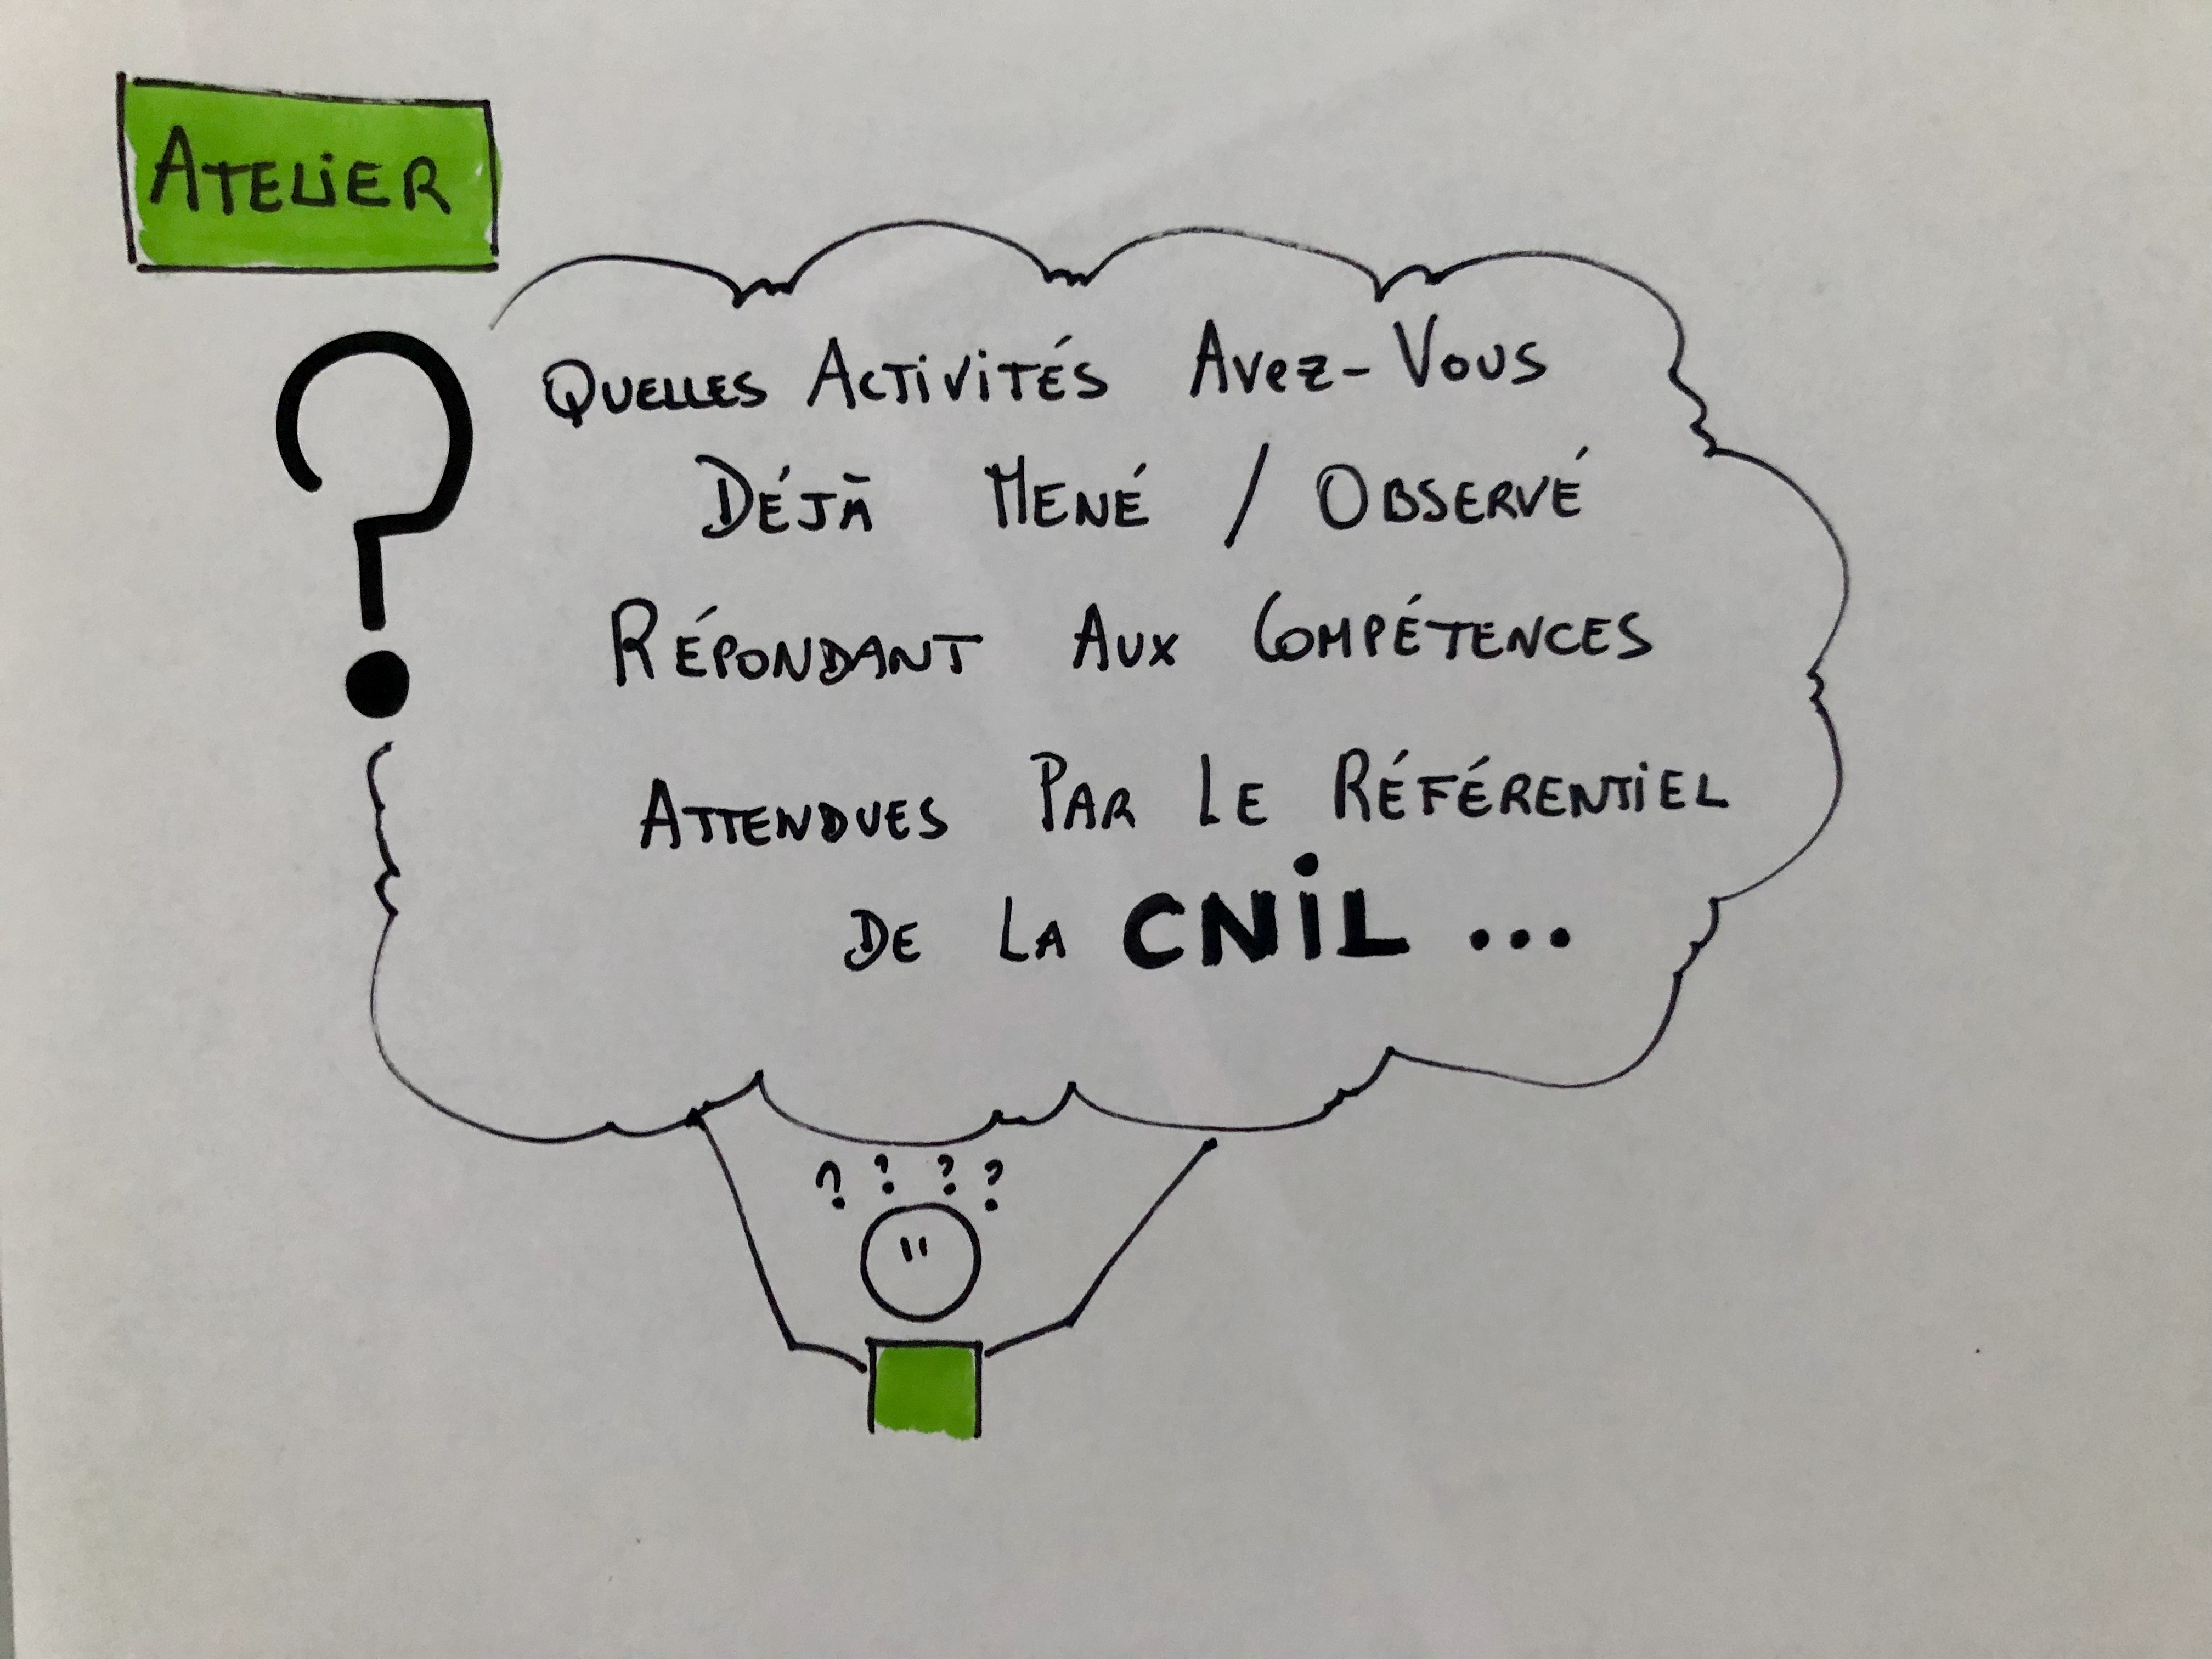 ATELIER
?
QUELLES ACTIVITÉS AVEZ-VOUS
DÉJÀ MENÉ / OBSERVÉ
RÉPONDANT AUX COMPÉTENCES
ATTENDUES PAR LE RÉFÉRENTIEL
DE LA CNIL ...
? ? ? ?